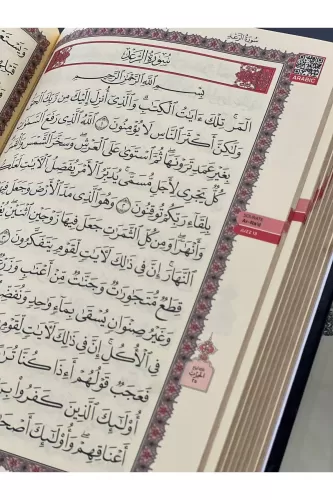 سُورَةُ الرَّعْدِ
ARABIC
سُورَةُ الرَّعْدِ
بِسْمِ اللَّهِ الرَّحْمَٰنِ الرَّحِيمِ
الٓمٓر تِلْكَ ءَايَٰتُ الْكِتَٰبِ وَالَّذِىٓ أُنزِلَ إِلَيْكَ مِن رَّبِّكَ الْحَقُّ
وَلَٰكِنَّ أَكْثَرَ النَّاسِ لَا يُؤْمِنُونَ ١ اللَّهُ الَّذِى رَفَعَ السَّمَٰوَٰتِ
بِغَيْرِ عَمَدٍ تَرَوْنَهَا ثُمَّ اسْتَوَىٰ عَلَى الْعَرْشِ وَسَخَّرَ الشَّمْسَ وَالْقَمَرَ
كُلٌّ يَجْرِى لِأَجَلٍ مُّسَمًّى يُدَبِّرُ الْأَمْرَ يُفَصِّلُ الْءَايَٰتِ لَعَلَّكُم
بِلِقَآءِ رَبِّكُمْ تُوقِنُونَ ٢ وَهُوَ الَّذِى مَدَّ الْأَرْضَ وَجَعَلَ فِيهَا
وَأَنْهَٰرًا وَمِن كُلِّ الثَّمَرَٰتِ جَعَلَ فِيهَا زَوْجَيْنِ اثْنَيْنِ يُغْشِى
النَّهَارَ إِنَّ فِى ذَٰلِكَ لَءَايَٰتٍ لِّقَوْمٍ يَتَفَكَّرُونَ ٣
قِطَعٌ مُّتَجَٰوِرَٰتٌ وَجَنَّٰتٌ مِّنْ أَعْنَٰبٍ وَزَرْعٌ
وَغَيْرُ صِنْوَانٍ يُسْقَىٰ بِمَآءٍ وَٰحِدٍ وَنُفَضِّلُ
فِى الْأُكُلِ إِنَّ فِى ذَٰلِكَ لَءَايَٰتٍ لِّقَوْمٍ
فَعَجَبٌ قَوْلُهُمْ أَءِذَا كُنَّا تُرَٰبًا
أُو۟لَٰٓئِكَ الَّذِينَ كَفَرُوا۟ بِرَبِّهِمْ
أَعْنَاقِهِمْ وَأُو۟لَٰٓئِكَ أَصْحَٰبُ
Ar-Ra'd
JUZZ 13